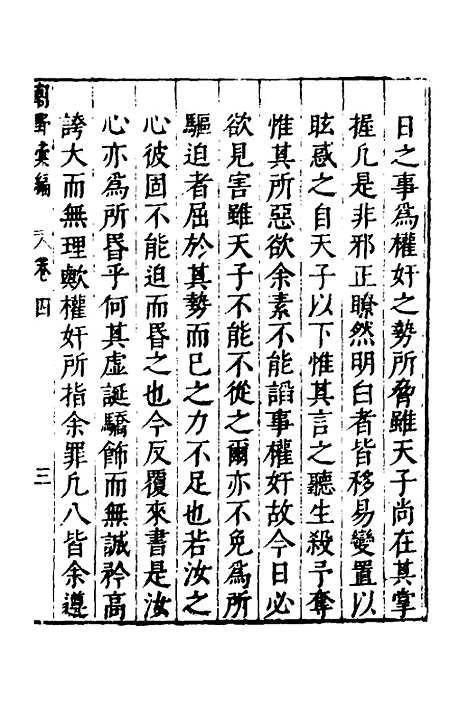 日之事爲權奸之勢所脅雖天子尚在其掌
握凢是非邪正瞭然明白者皆移易變置以
眩惑之自天子以下惟其言之聽生殺予奪
惟其所惡欲余素不能謟事權奸故今日必
欲見害雖天子不能不從之爾亦不免爲所
驅迫者屈於其勢而已之力不足也若汝之
心彼固不能迫而昏之也今反覆來書是汝
心亦爲所昏乎何其虛誕驕飾而無誠矜高
誇大而無理歟權奸所指余罪凢八皆余遵
朝野彙編 卷四 三